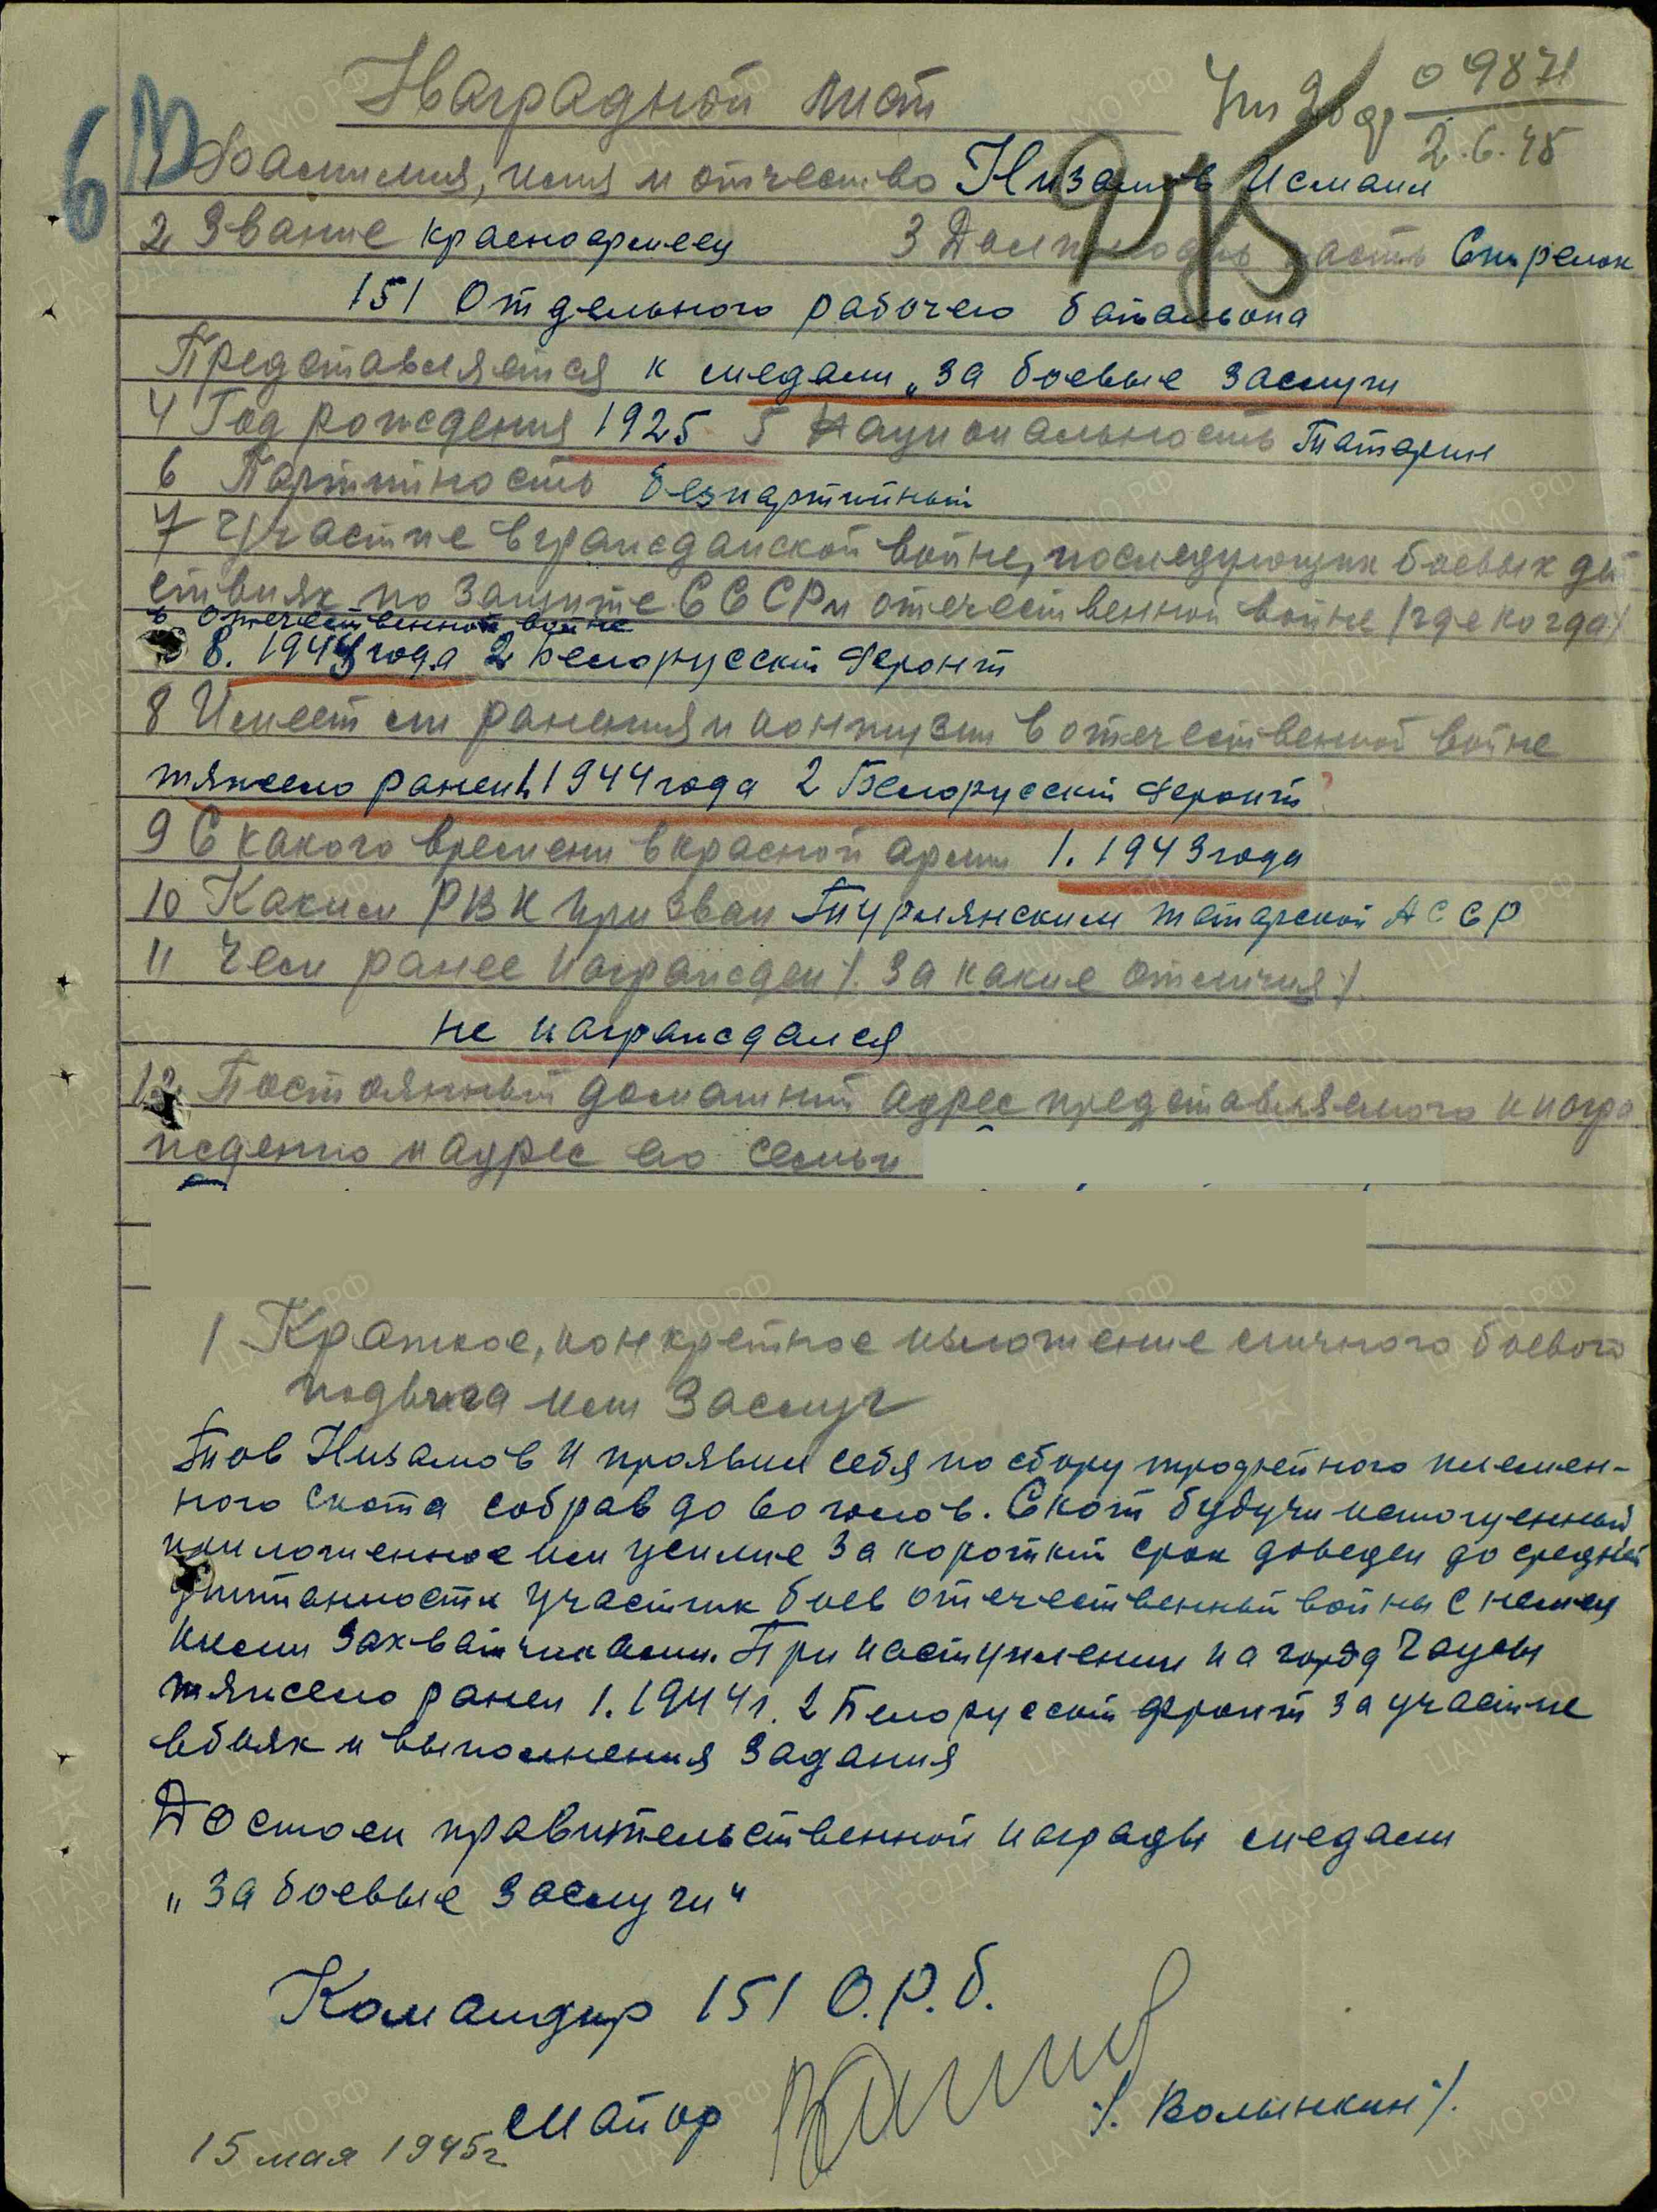 Наградной лист
09871
2.6.45
6
1 Фамилия, имя и отчество Низамов Исмаил
2 Звание красноармеец 3 Должность часть Стрелок
151 Отдельного рабочего батальона
Представляется к медали „за боевые заслуги
4 Год рождения 1925 5 Национальность Татарин
6 Партийность безпартийный
7 Участие в гражданской войне, последующих боевых дей
ствиях по защите СССР и отечественной войне /где когда/
в отечественной войне
8. 1943 года 2 Белорусский Фронт
8 Имеет ли ранения и контузии в отечественной войне
тяжело ранен 1 1944 года 2 Белорусский Фронт
9 С какого времени в красной армии 1. 1943 года
10 Каким РВК призван Татарской АССР
11 Чем ранее награжден /. За какие отличия /.
не награждался
12. Постоянный домашний адрес представляемого к награ
ждению и адрес его семьи
1 Краткое, конкретное изложение личного боевого
подвига или заслуг
Тов Низамов И проявил себя по сбору трофейного племен-
ного скота собрав до 60 голов. Скот будучи истощенный
приложенное им усилие за короткий срок доведен до средней
упитанности Участник боев отечественный войны с немец
кими захватчиками. При наступлении на город Чаусы
тяжело ранен 1. 1944 г. 2 Белорусский фронт за участие
в боях и выполнения задания
Достоен правительственной награды медали
„За боевые заслуги"
Командир 151 О.Р.б.
майор /. Волынкин /.
15 мая 1945г